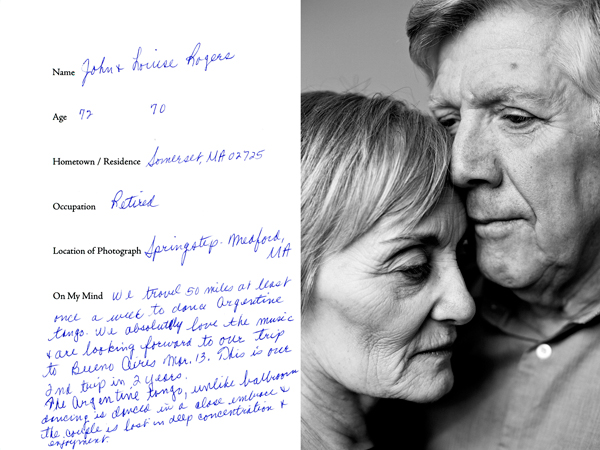 Name John & Louise Rogers
Age 72 70
Hometown / Residence Somerset, MA 02725
Occupation Retired
Location of Photograph Springstep. Medford,
MA
On My Mind We travel 50 miles at least
once a week to dance Argentine
tango. We absolutely love the music
& are looking forward to our trip
to Bueno Aires Mar. 13. This is our
2nd trip in 2 years.
The Argentine tango, unlike ballroom
dancing is danced in a close embrace &
the couple is lost in deep concentration &
enjoyment.